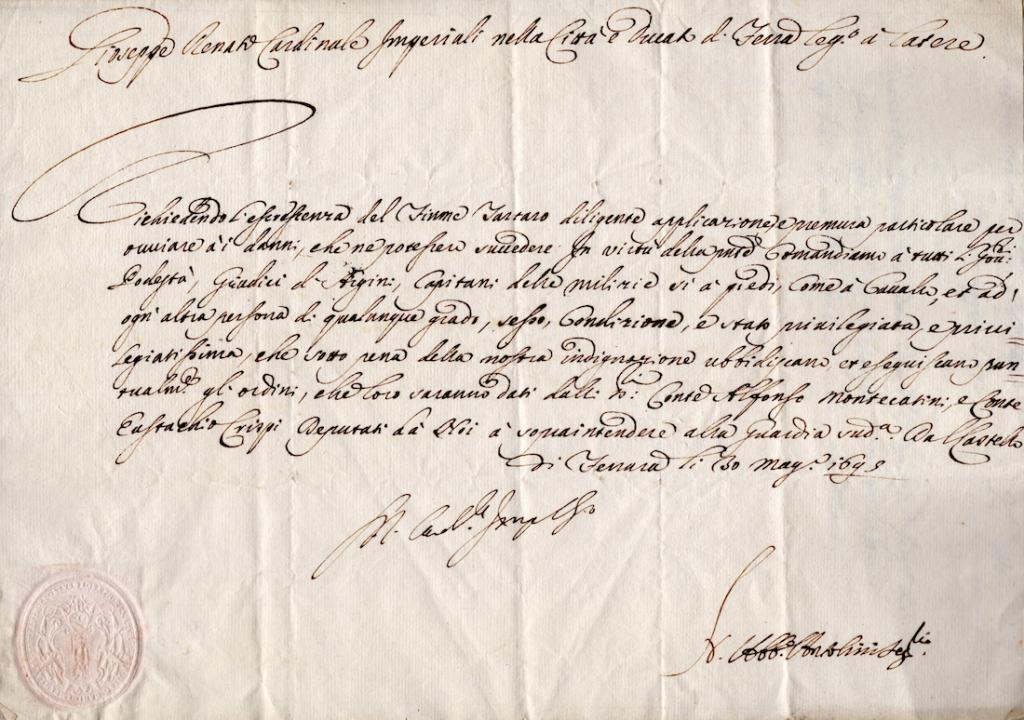 Gioseppe Renato Cardinale Imperiali nella Città e Ducato di Ferra Leg.º à Latere.
Richiedendo l'escrescenza del Fiume Tartaro diligente applicazione, e premura particolare per
ovviare à i danni, che ne potessero succedere. In virtù della pntē Comandiamo à tutti li
Podestà, Giudici d'Argini, Capitani delle milizie sì à piedi, come à Cavallo, et ad
ogn'altra persona di qualunque grado, sesso, Condizione, e stato privilegiata, e privi=
legiatissima, che sotto pena della nostra indignazione ubbidiscano et eseguiscano pun=
tualm.te gli ordini, che loro saranno dati dalli Conte Alfonso Montecatini, e Conte
Eustachio Crispi Deputati dà Noi à sopraintendere alla Guardia sud.ª Dal Castello
di Ferrara li 30 mag.º 169
Card.le Imp